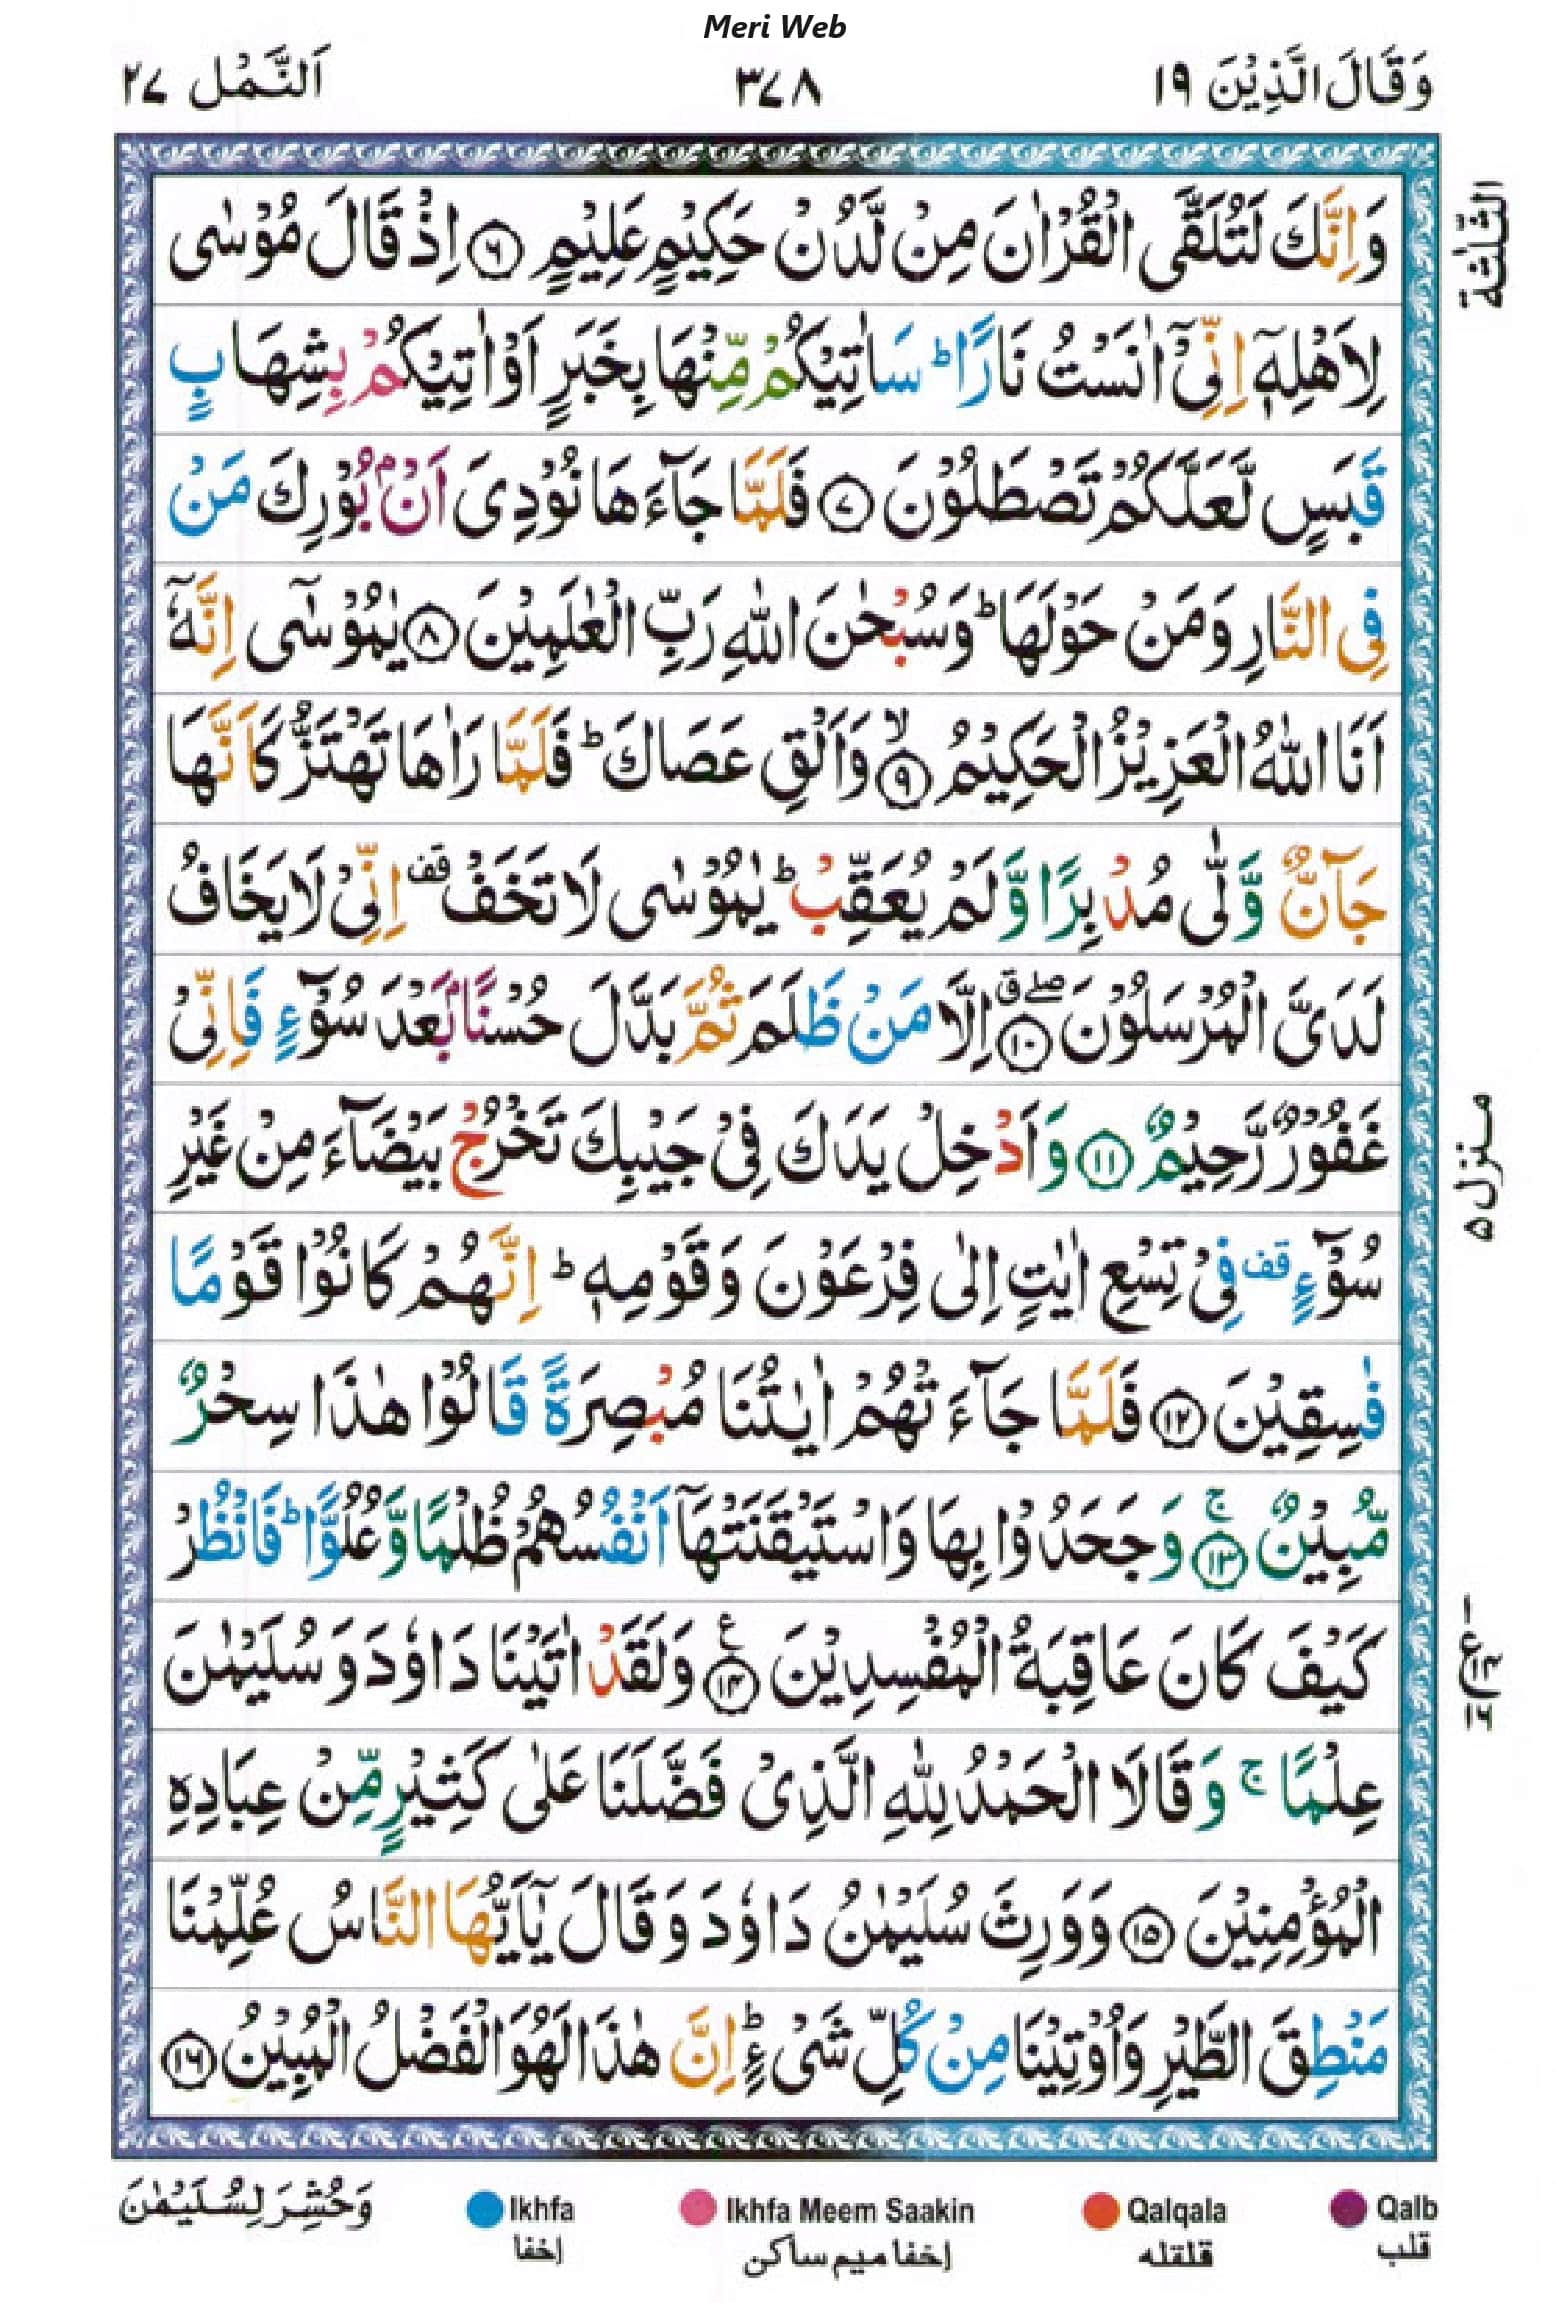 Meri Web
وَقَالَ الَّذِیْنَ ۱۹
۳۷۸
اَلنَّمْل ۲۷
وَاِنَّكَ لَتُلَقَّی الْقُرْاٰنَ مِنْ لَّدُنْ حَكِیْمٍ عَلِیْمٍ ۶ اِذْ قَالَ مُوْسٰی
لِاَهْلِهٖۤ اِنِّیْۤ اٰنَسْتُ نَارًا ؕ سَاٰتِیْكُمْ مِّنْهَا بِخَبَرٍ اَوْ اٰتِیْكُمْ بِشِهَابٍ
قَبَسٍ لَّعَلَّكُمْ تَصْطَلُوْنَ ۷ فَلَمَّا جَآءَهَا نُوْدِیَ اَنْۢ بُوْرِكَ مَنْ
فِی النَّارِ وَمَنْ حَوْلَهَا ؕ وَسُبْحٰنَ اللّٰهِ رَبِّ الْعٰلَمِیْنَ ۸ یٰمُوْسٰۤی اِنَّهٗۤ
اَنَا اللّٰهُ الْعَزِیْزُ الْحَكِیْمُ ۙ ۹ وَاَلْقِ عَصَاكَ ؕ فَلَمَّا رَاٰهَا تَهْتَزُّ كَاَنَّهَا
جَآنٌّ وَّلّٰی مُدْبِرًا وَّلَمْ یُعَقِّبْ ؕ یٰمُوْسٰی لَا تَخَفْ قف اِنِّیْ لَا یَخَافُ
لَدَیَّ الْمُرْسَلُوْنَ ۖ ق ۱۰ اِلَّا مَنْ ظَلَمَ ثُمَّ بَدَّلَ حُسْنًۢا بَعْدَ سُوْٓءٍ فَاِنِّیْ
غَفُوْرٌ رَّحِیْمٌ ۱۱ وَاَدْخِلْ یَدَكَ فِیْ جَیْبِكَ تَخْرُجْ بَیْضَآءَ مِنْ غَیْرِ
سُوْٓءٍ قف فِیْ تِسْعِ اٰیٰتٍ اِلٰی فِرْعَوْنَ وَقَوْمِهٖ ؕ اِنَّهُمْ كَانُوْا قَوْمًا
فٰسِقِیْنَ ۱۲ فَلَمَّا جَآءَتْهُمْ اٰیٰتُنَا مُبْصِرَةً قَالُوْا هٰذَا سِحْرٌ
مُّبِیْنٌ ۚ ۱۳ وَجَحَدُوْا بِهَا وَاسْتَیْقَنَتْهَاۤ اَنْفُسُهُمْ ظُلْمًا وَّعُلُوًّا ؕ فَانْظُرْ
كَیْفَ كَانَ عَاقِبَةُ الْمُفْسِدِیْنَ ع ۱۴ وَلَقَدْ اٰتَیْنَا دَاوٗدَ وَسُلَیْمٰنَ
عِلْمًا ۚ وَقَالَا الْحَمْدُ لِلّٰهِ الَّذِیْ فَضَّلَنَا عَلٰی كَثِیْرٍ مِّنْ عِبَادِهِ
الْمُؤْمِنِیْنَ ۱۵ وَوَرِثَ سُلَیْمٰنُ دَاوٗدَ وَقَالَ یٰۤاَیُّهَا النَّاسُ عُلِّمْنَا
مَنْطِقَ الطَّیْرِ وَاُوْتِیْنَا مِنْ كُلِّ شَیْءٍ ؕ اِنَّ هٰذَا لَهُوَ الْفَضْلُ الْمُبِیْنُ ۱۶
الثلٰثة
منزل ۵
وَحُشِرَ لِسُلَیْمٰنَ
Ikhfa
اخفا
Ikhfa Meem Saakin
اخفا میم ساکن
Qalqala
قلقله
Qalb
قلب